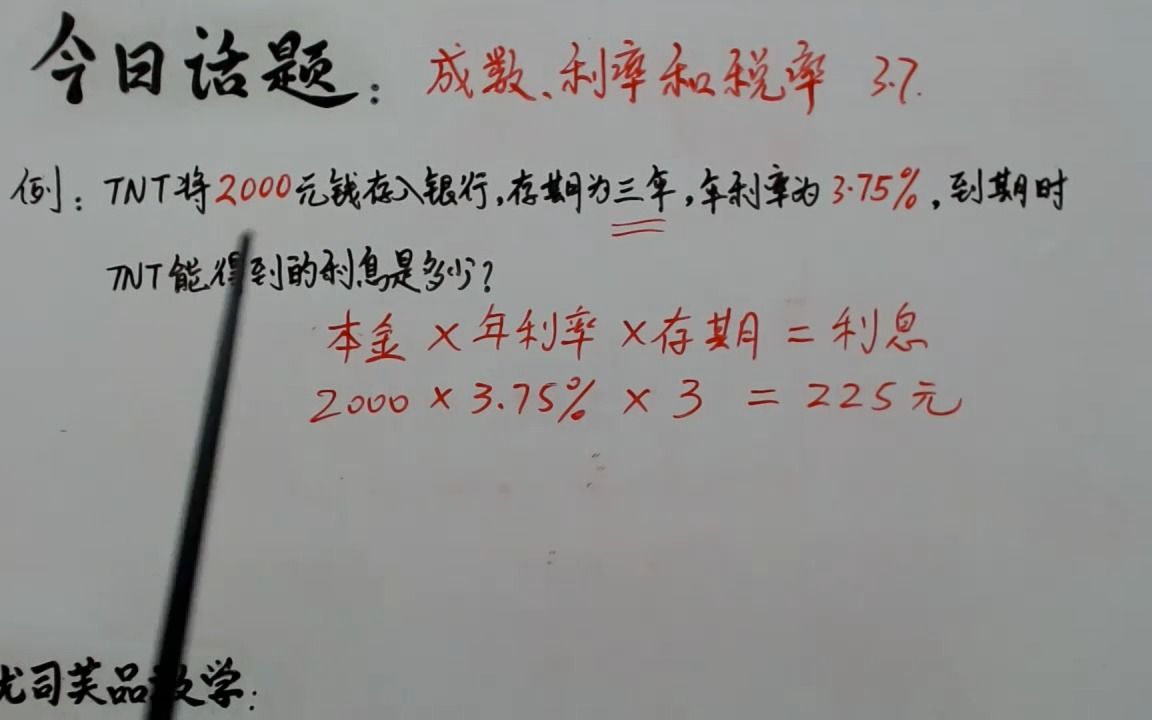 今日话题：成数、利率和税率 3.7.
例：TNT将2000元钱存入银行,存期为三年,年利率为3.75%,到期时
TNT能得到的利息是多少?
本金×年利率×存期=利息
2000×3.75%×3=225元
司芙品 学: